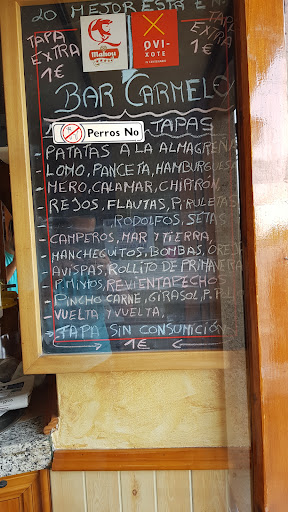 LO MEJOR ESTÁ EN
TAPA
EXTRA
1€
Mahou
QVI-
XOTE
TAPA
EXTRA
1€
BAR CARMELO
Perros No
TAPAS
- PATATAS A LA ALMAGREÑA
- LOMO, PANCETA, HAMBURGUESA
- MERO, CALAMAR, CHIPIRÓN,
- REJOS, FLAUTAS, PIRULETAS
RODOLFOS, SETAS
- CAMPEROS, MAR Y TIERRA,
- MANCHEGUITOS, BOMBAS, OREJA
- AVISPAS, ROLLITO DE PRIMAVERA
- P. MIXTOS, REVIENTAPECHOS,
- PINCHO CARNE, GIRASOL,
- VUELTA Y VUELTA,
- TAPA SIN CONSUMICIÓN
1€